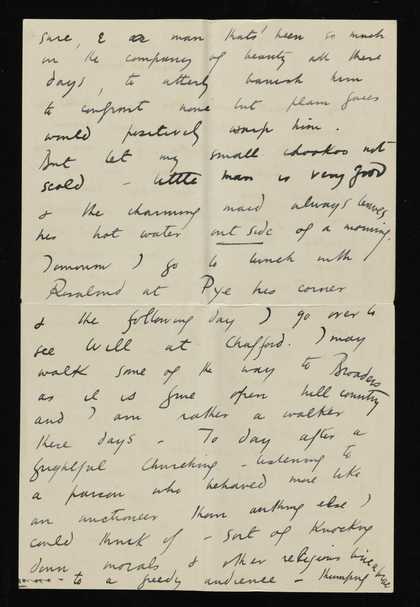 sure, & a man thats' been so much
in the company of beauty all these
days, to utterly banish him
to confront none but plain faces
would positively warp him.
But let my small chookos not
scold – little man is very good
& the charming maid always leaves
his hot water out side of a morning.
Tomorrow I go to lunch with
Rosalind at Pye his corner
& the following day I go over to
see Will at Chafford. I may
walk some of the way to Broaders
as it is fine open hill country
and I am rather a walker
these days – To day after a
frightful Churching – listening to
a parson who behaved more like
an auctioneer than anthing else I
could think of – sort of knocking
down morals & other religious
– to a greedy audience – thumping